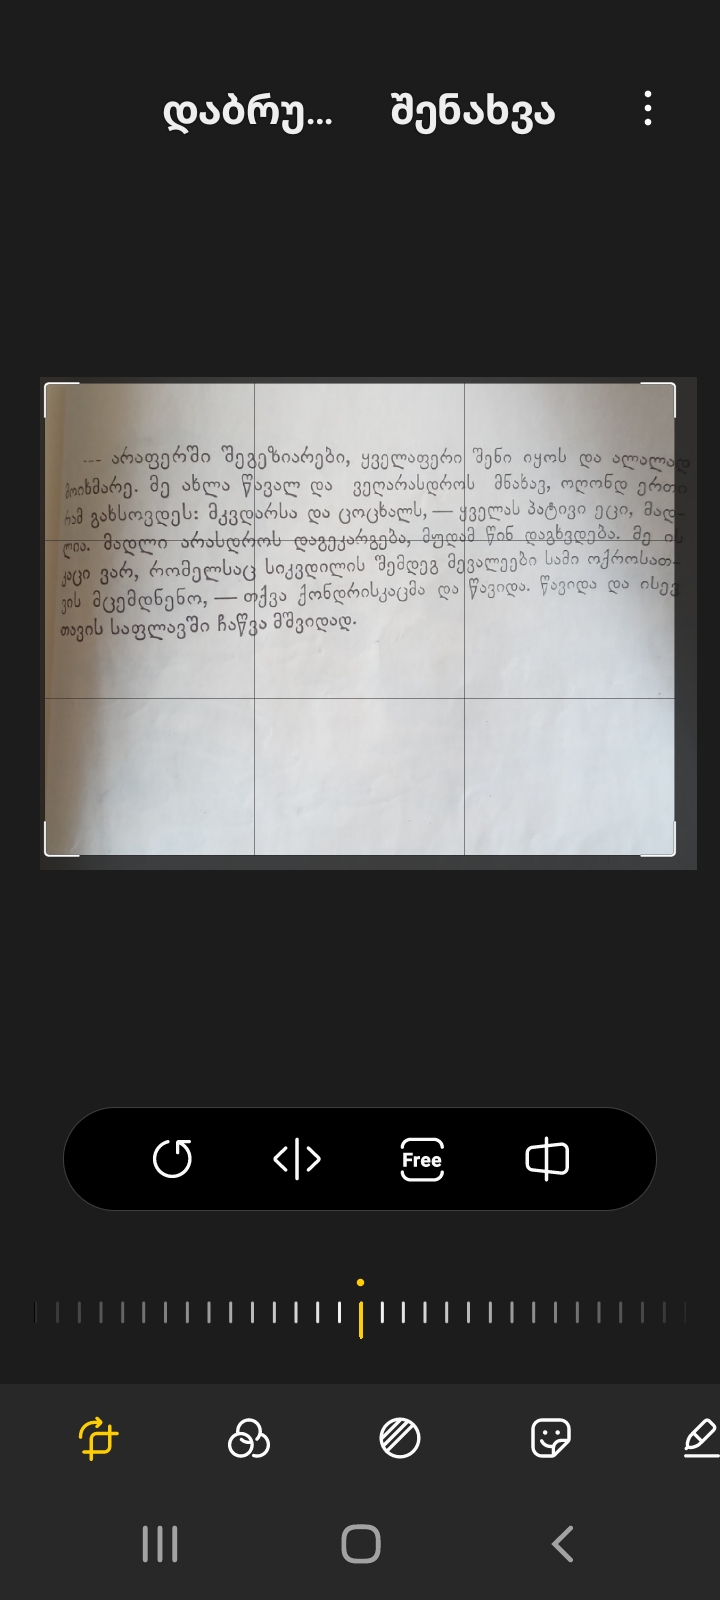 დაბრუ... შენახვა
--- არაფერში შეგეზიარები, ყველაფერი შენი იყოს და ალალად
მოიხმარე. მე ახლა წავალ და ვეღარასდროს მნახავ, ოღონდ ერთი
რამ გახსოვდეს: მკვდარსა და ცოცხალს, — ყველას პატივი ეცი, მად-
ლია. მადლი არასდროს დაგეკარგება, მუდამ წინ დაგხვდება. მე ის
კაცი ვარ, რომელსაც სიკვდილის შემდეგ მევალეები სამი ოქროსათ-
ვის მცემდნენო, — თქვა ქონდრისკაცმა და წავიდა. წავიდა და ისევ
თავის საფლავში ჩაწვა მშვიდად.
Free